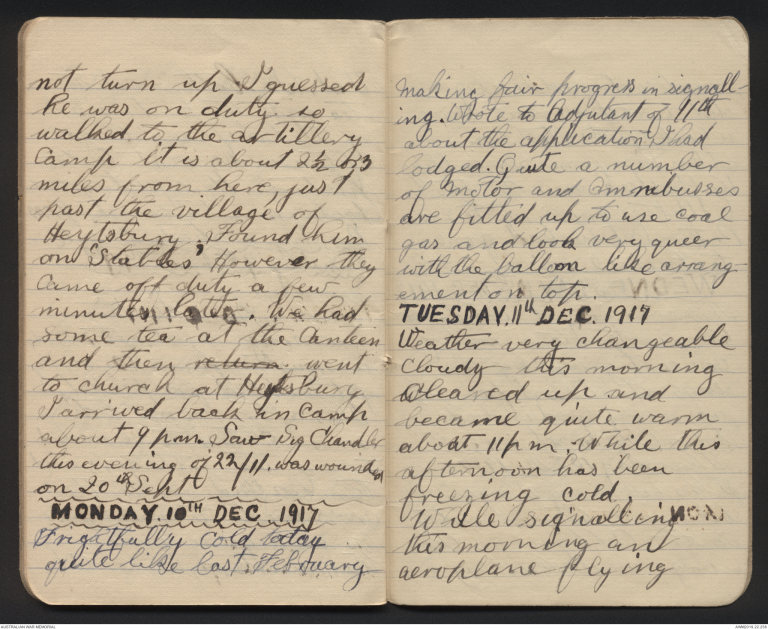 not turn up I guessed
he was on duty so
walked to the artillery
Camp it is about 2½ or 3
miles from here, just
past the village of
Heytsbury. Found him
on 'Stables' However they
came off duty a few
minutes later. We had
some tea at the Canteen
and then return. went
to church at Heytsbury
I arrived back in camp
about 9 p.m. Saw Sig Chandler
this evening of 22/11. was wounded
on 20th Sept
MONDAY. 10TH DEC. 1917
Frightfully cold today
quite like last February
making fair progress in signall-
ing. Wrote to Adjutant of 11th
about the application I had
lodged. Quite a number
of motor and omnibusses
are fitted up to use coal
gas and look very queer
with the balloon like arrang-
ement on top.
TUESDAY. 11th DEC. 1917
Weather very changeable
Cloudy this morning
cleared up and
became quite warm
about 11 p m. While this
afternoon has been
freezing cold.
While signalling
this morning an
aeroplane flying
AUSTRALIAN WAR MEMORIAL